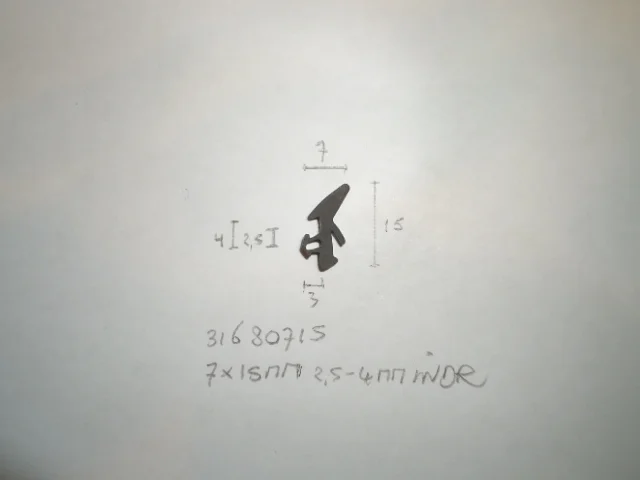 7
15
4 2,5
3
31680715
7x15mm 2,5-4mm inDR